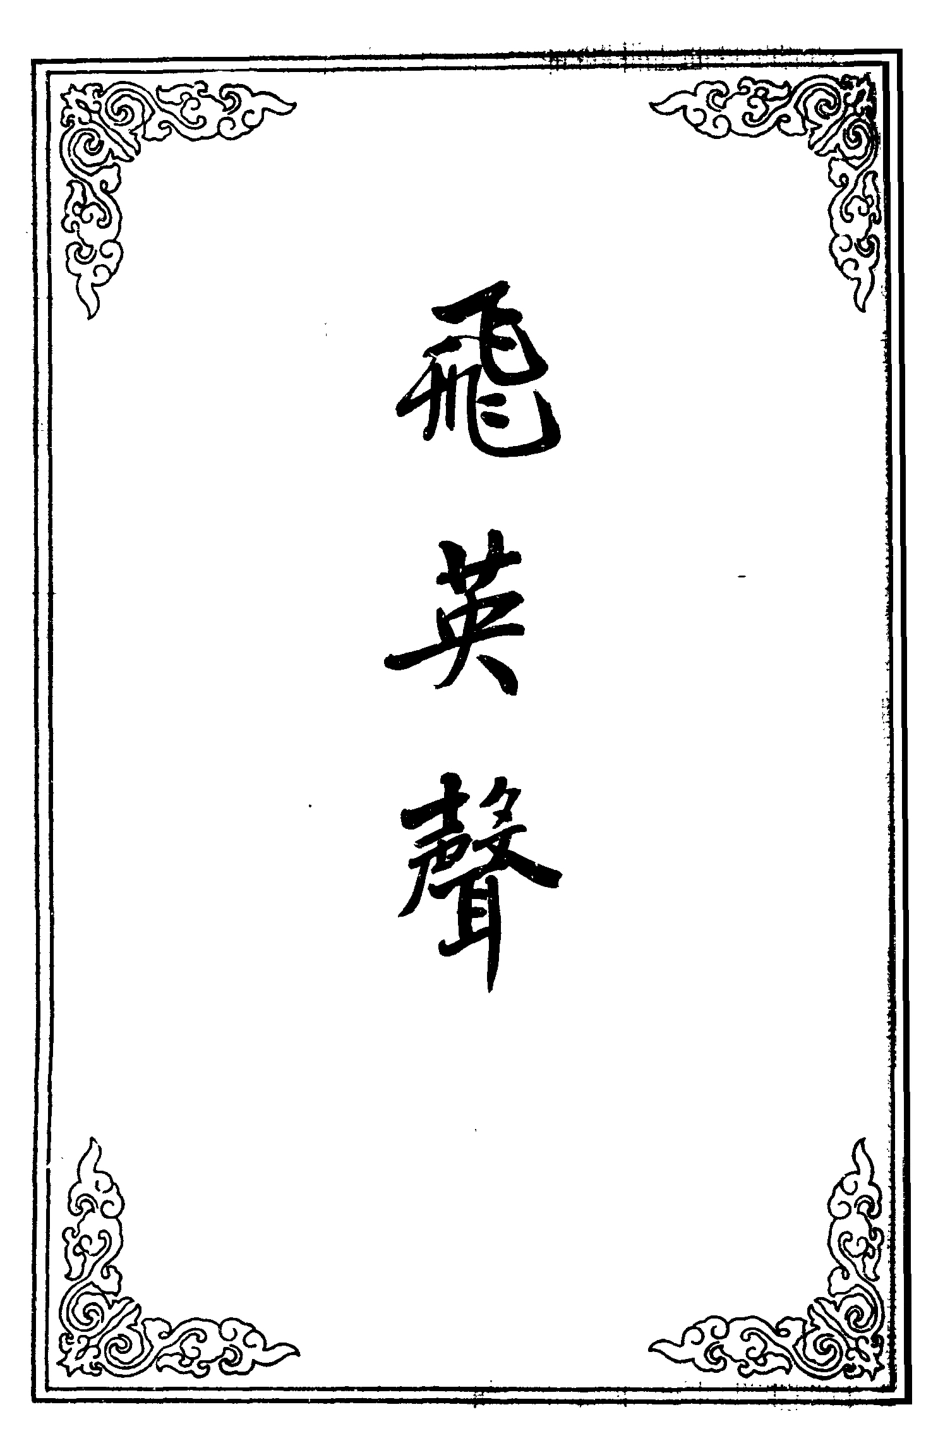 飛英聲